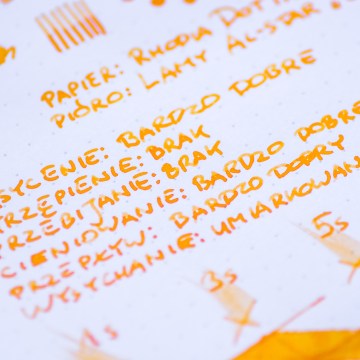 PAPIER: RHODIA DOT
PIÓRO: LAMY AL-STAR
SYCENIE: BARDZO DOBRE
RZEPIENIE: BRAK
PRZEBIJANIE: BRAK
CIENIOWANIE: BARDZO DOBRE
PRZEPŁYW: BARDZO DOBRY
WYSYCHANIE: UMIARKOWAN
1s 3s 5s